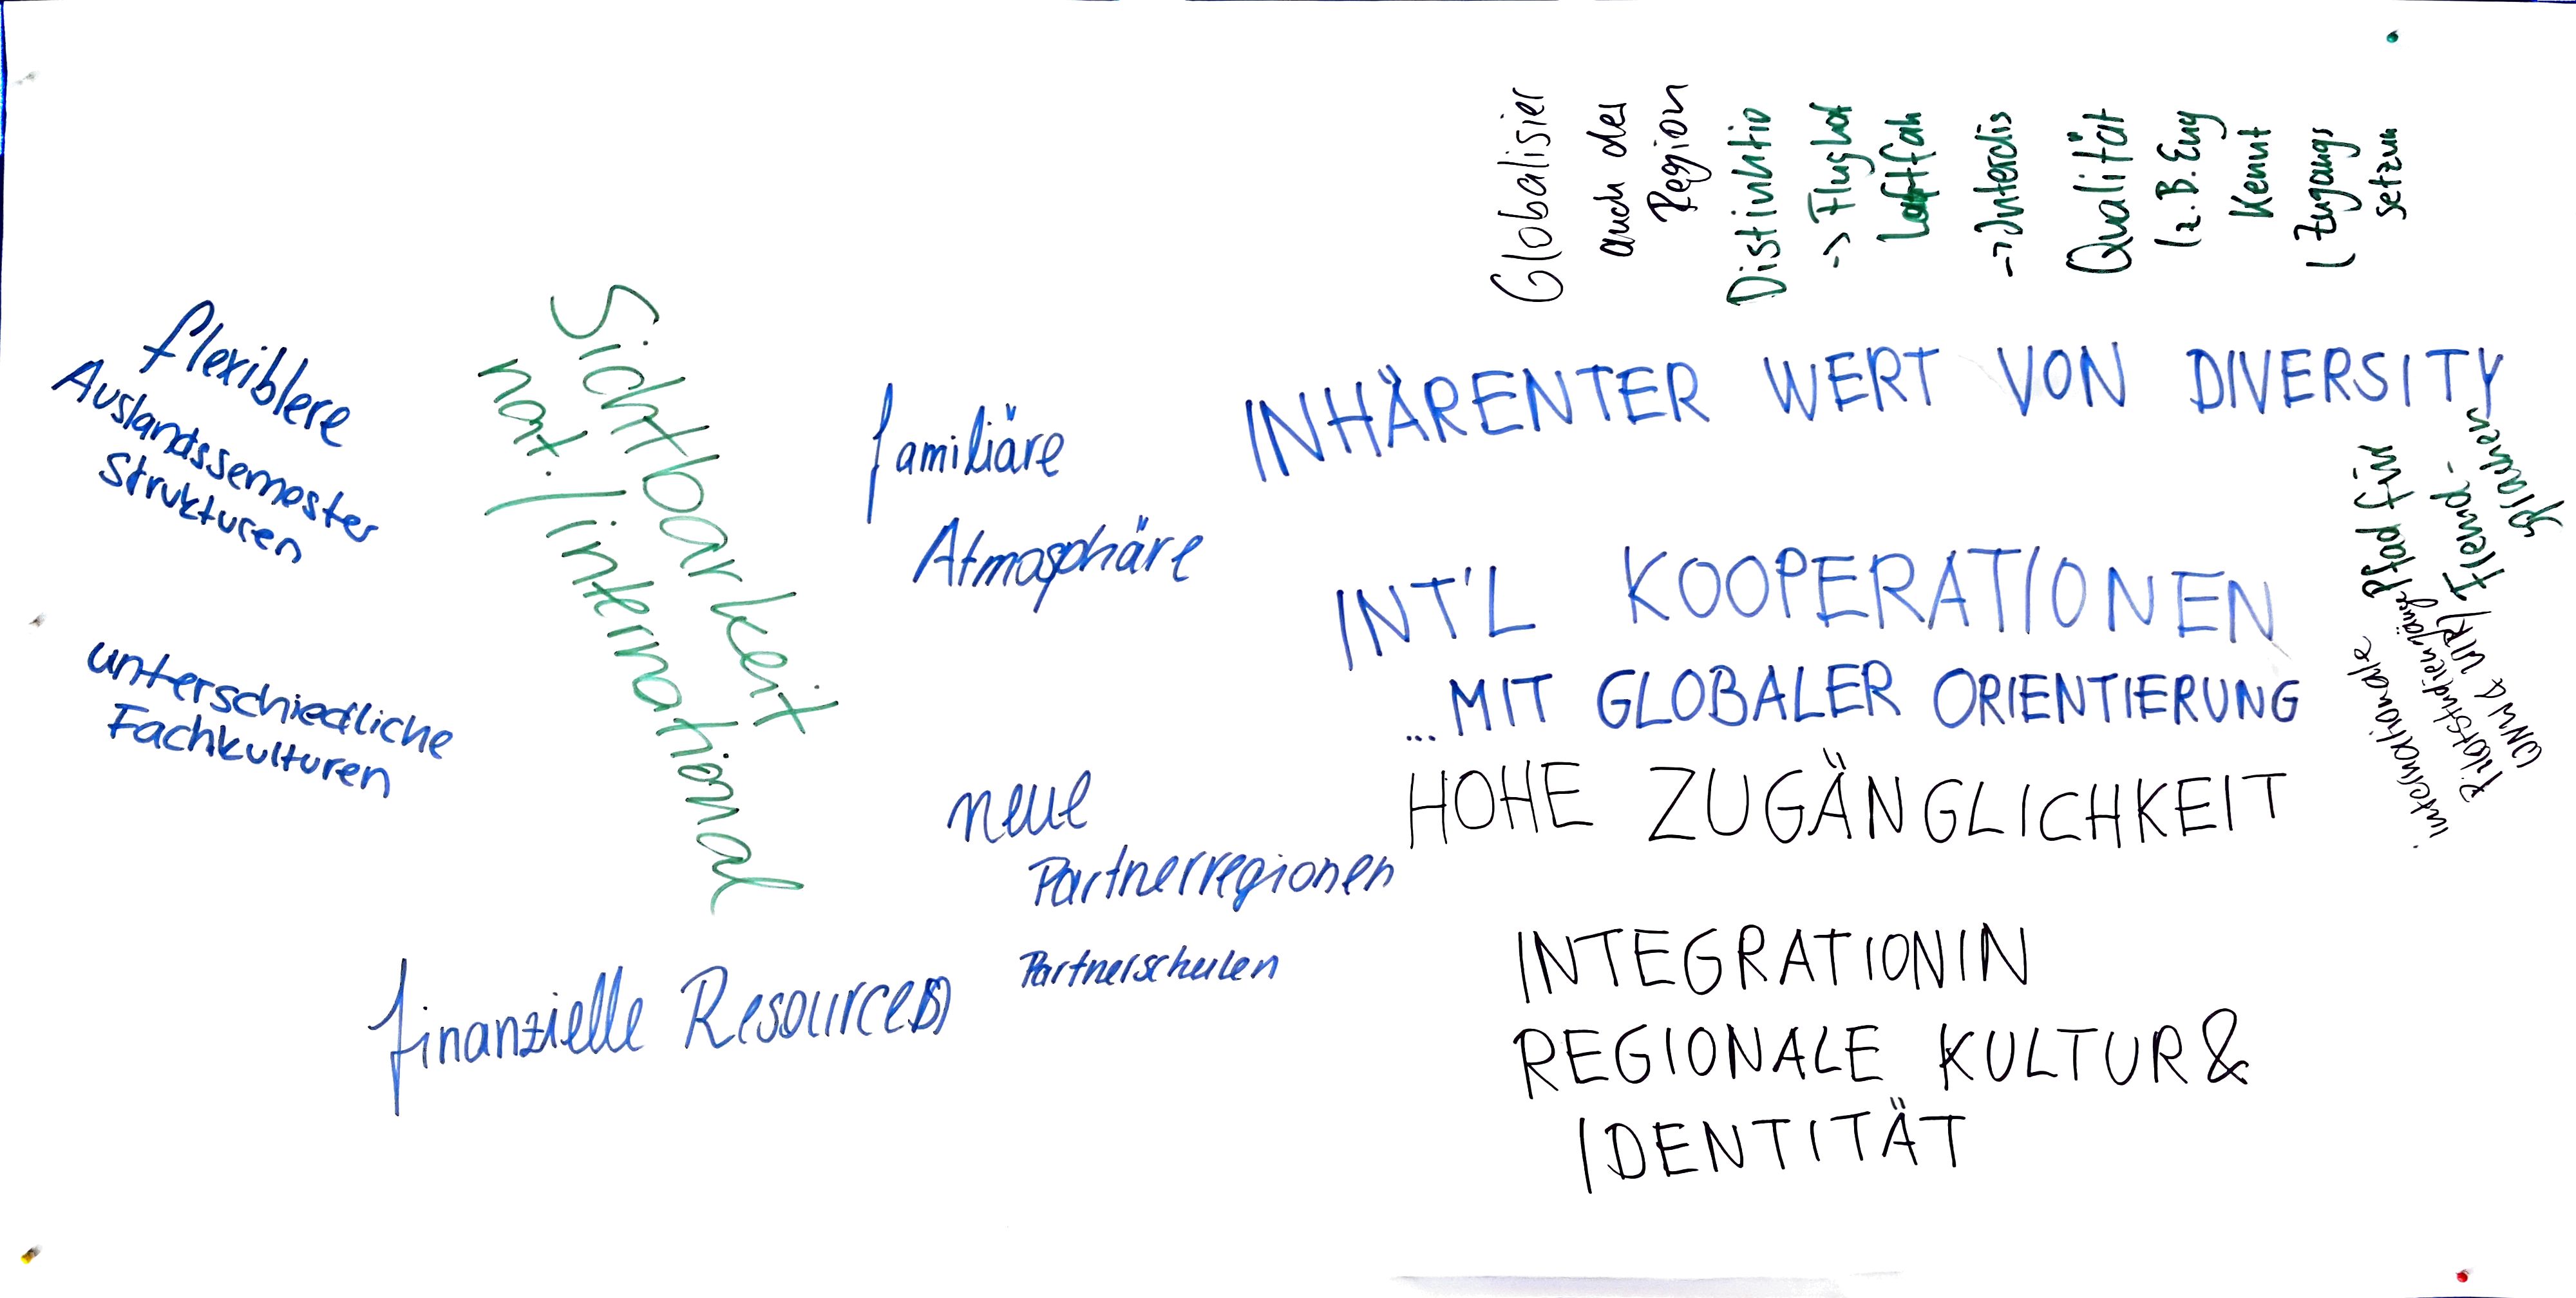 flexiblere
Auslandssemester
Strukturen
unterschiedliche
Fachkulturen
Sichtbarkeit
nat. / international
familiäre
Atmosphäre
neue
Partnerregionen
Partnerschulen
finanzielle Resource(s)
Globalisier
auch der
Region
Distinktio
-> Flughaf
Luftfah
-> Interdis
Qualität
(z.B. Eng
Kennt
( Zugangs
setzun
INHÄRENTER WERT VON DIVERSITY
INT'L KOOPERATIONEN
... MIT GLOBALER ORIENTIERUNG
HOHE ZUGÄNGLICHKEIT
INTEGRATIONIN
REGIONALE KULTUR &
IDENTITÄT
Pfad für
Fremd-
sprachen
internationale
Pilotstudiengänge